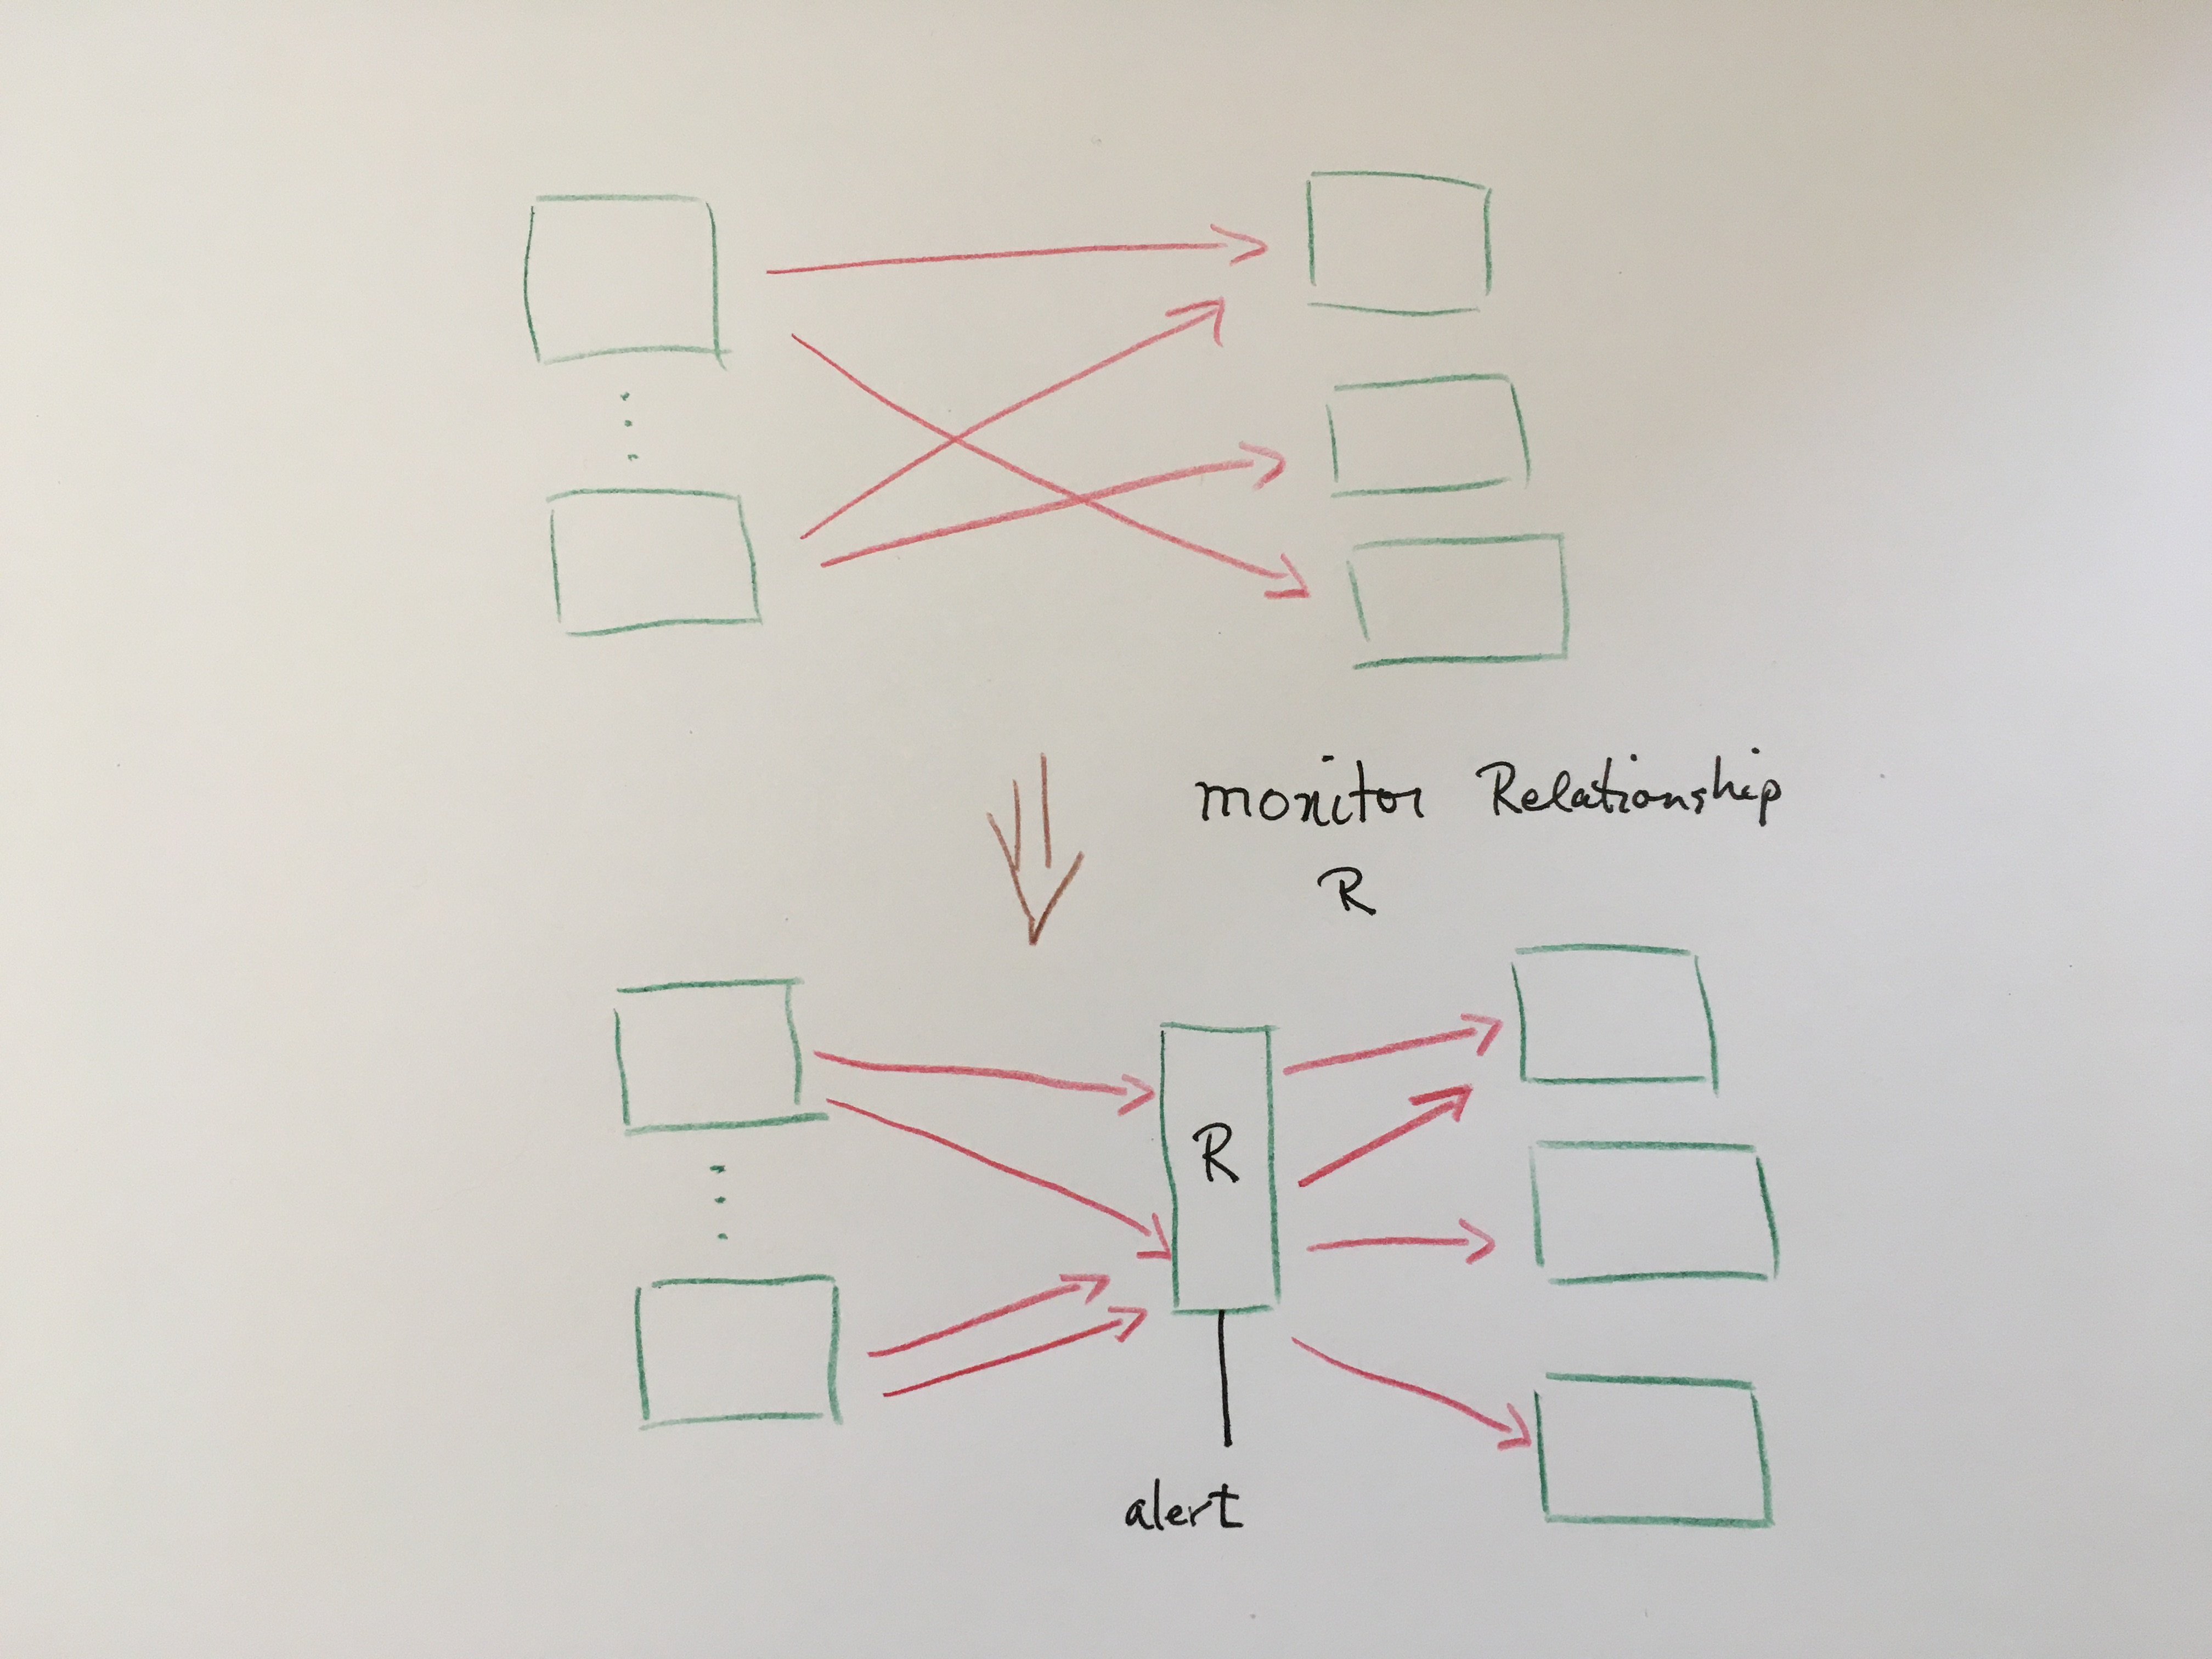 monitor Relationship
R
R
alert